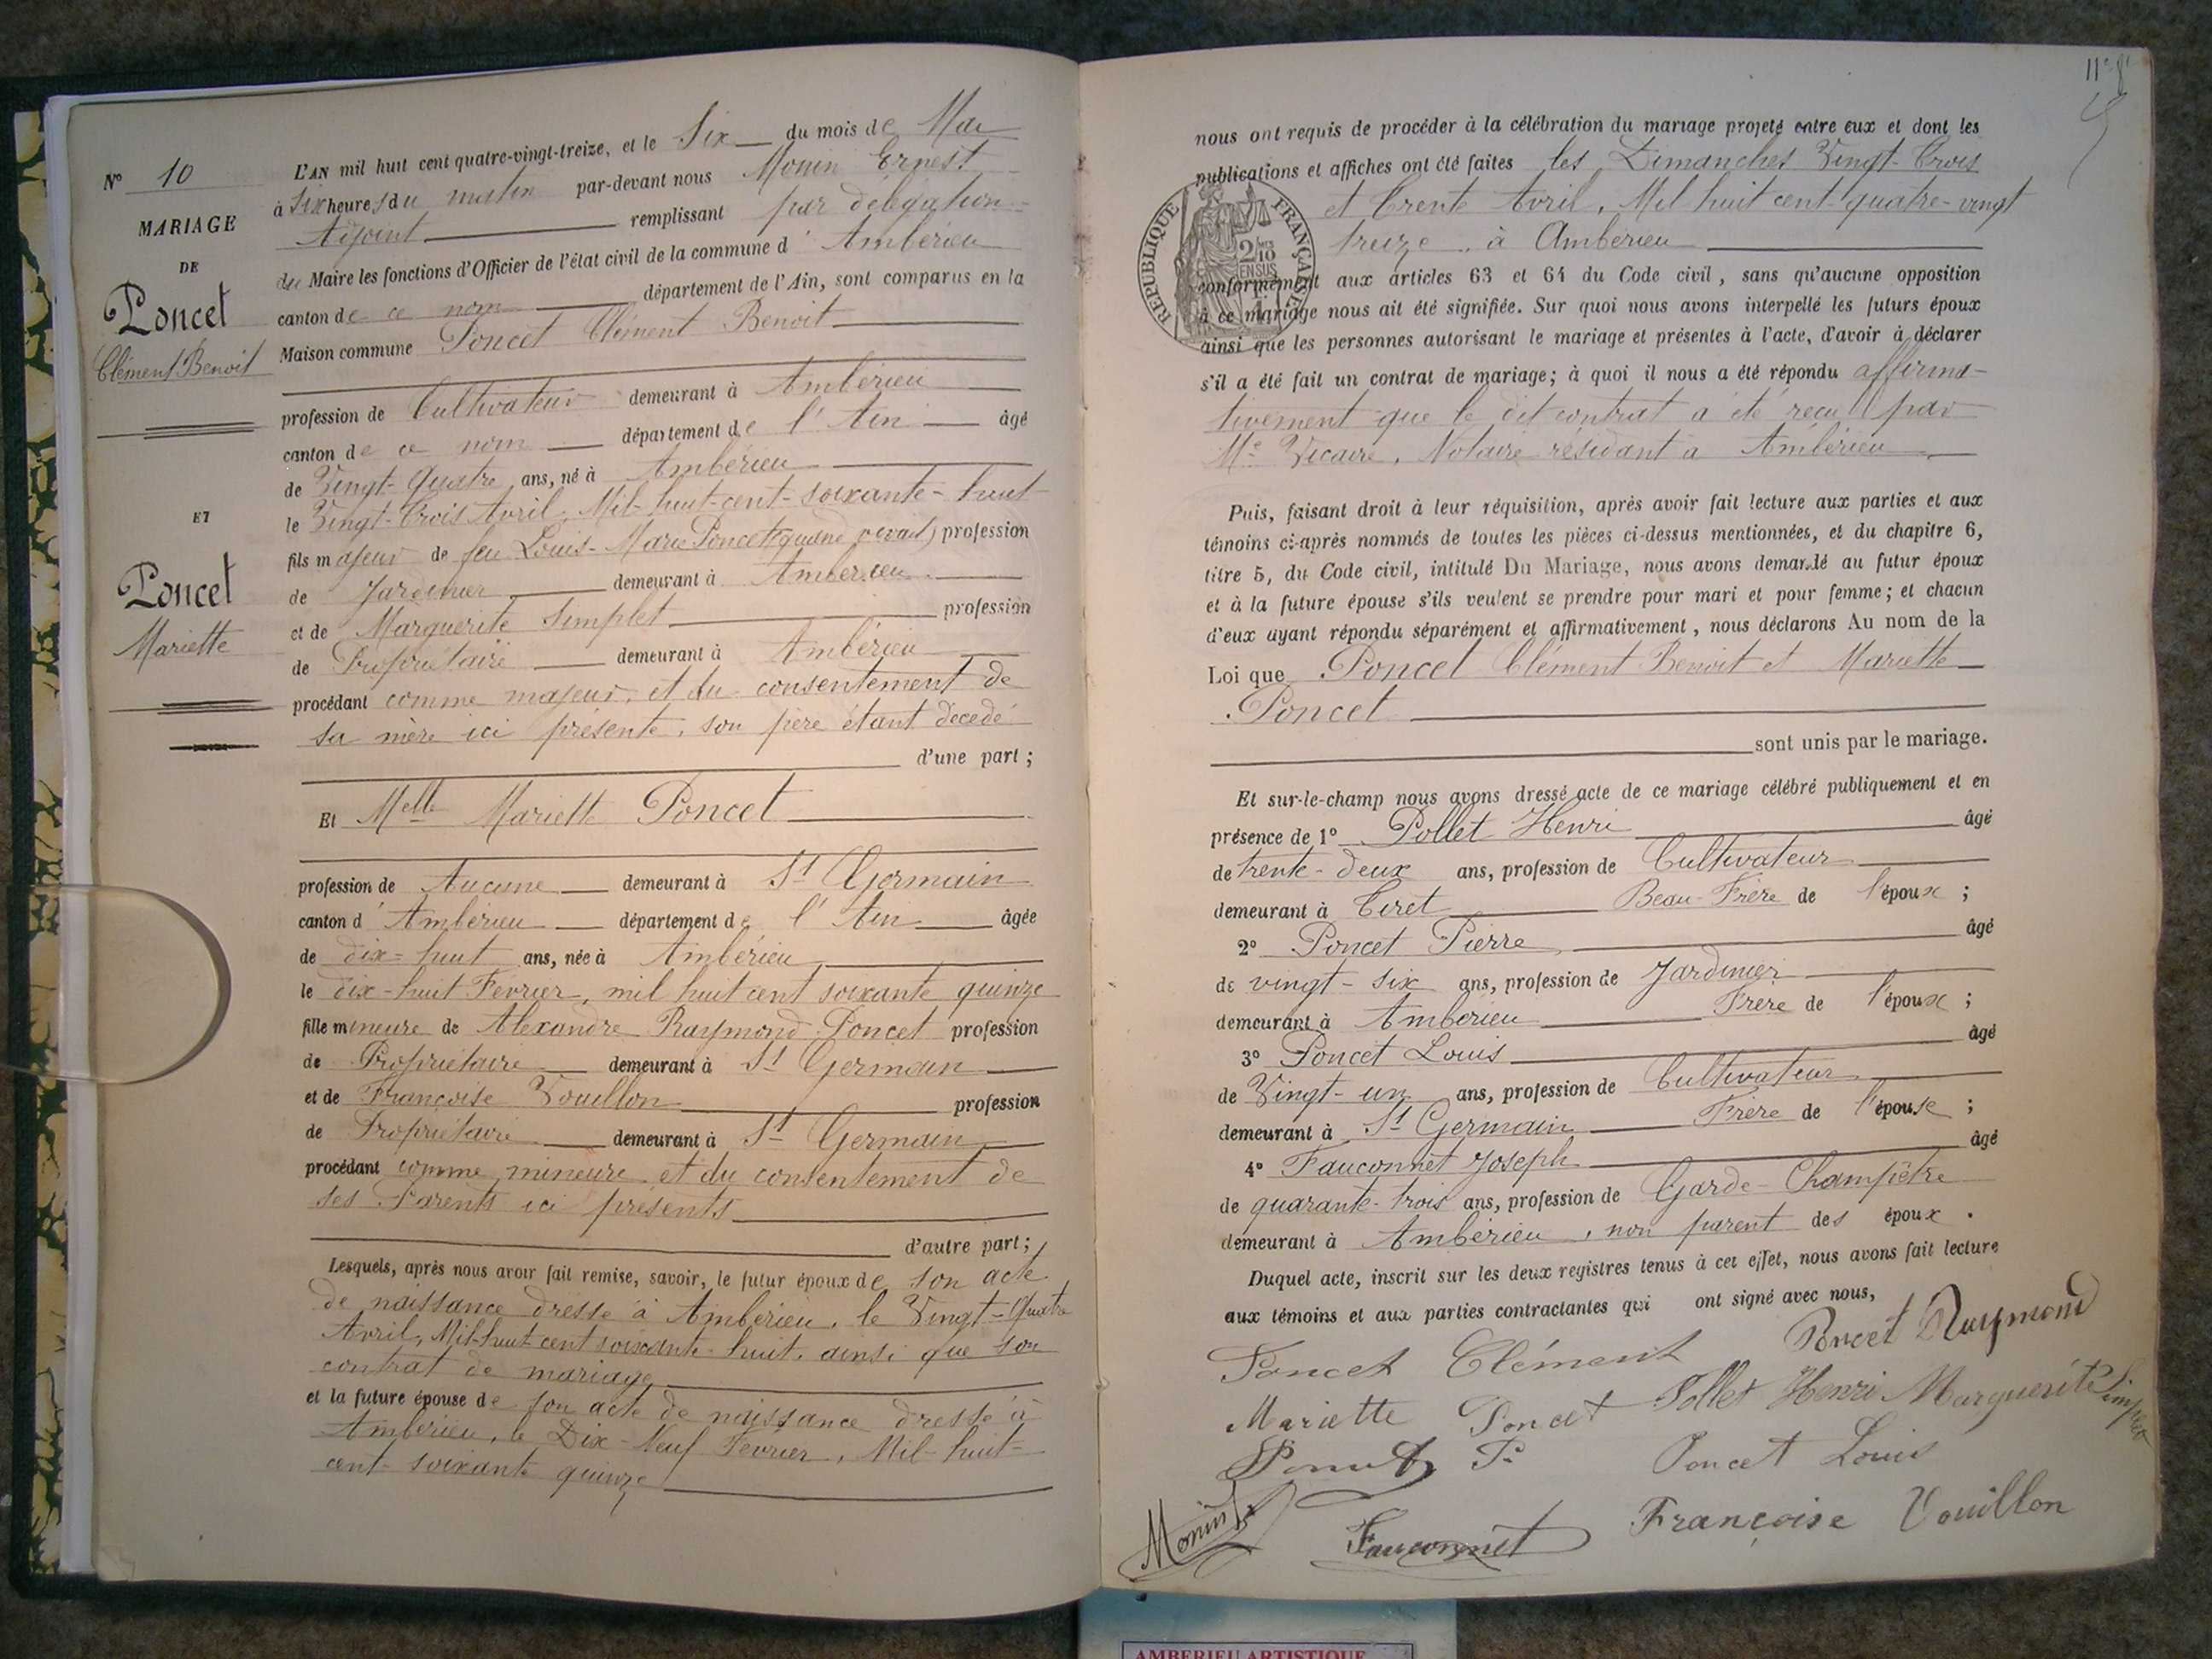 N° 10
MARIAGE
DE
Poncet
Clément Benoit
ET
Poncet
Mariette
L'AN mil huit cent quatre-vingt-treize, et le Six du mois de Mai
à Six heures du matin par-devant nous Monin Ernest
Adjoint remplissant par délégation
du Maire les fonctions d'Officier de l'état civil de la commune d'Ambérieu
canton de ce nom département de l'Ain, sont comparus en la
Maison commune Poncet Clément Benoit
profession de Cultivateur demeurant à Ambérieu
canton de ce nom département de l'Ain âgé
de Vingt-Quatre ans, né à Ambérieu
le Vingt-Trois Avril, Mil-huit-cent-soixante-huit
fils majeur de feu Louis-Marie Poncet (quand vivait) profession
de Jardinier demeurant à Ambérieu
et de Marguerite Simplet profession
de Propriétaire demeurant à Ambérieu
procédant comme majeur, et du consentement de
sa mère ici présente, son père étant décédé
d'une part ;
Et Melle Mariette Poncet
profession de Aucune demeurant à St Germain
canton d'Ambérieu département de l'Ain âgée
de dix-huit ans, née à Ambérieu
le dix-huit Février, mil huit cent soixante quinze
fille mineure de Alexandre Raymond Poncet profession
de Propriétaire demeurant à St Germain
et de Françoise Vouillon profession
de Propriétaire demeurant à St Germain
procédant comme mineure et du consentement de
ses Parents ici présents
d'autre part ;
Lesquels, après nous avoir fait remise, savoir, le futur époux de son acte
de naissance dressé à Ambérieu, le Vingt-Quatre
Avril, Mil-huit-cent soixante-huit, ainsi que son
contrat de mariage
et la future épouse de son acte de naissance dressé à
Ambérieu, le Dix-Neuf Février, Mil-huit-
cent-soixante quinze
nous ont requis de procéder à la célébration du mariage projeté entre eux et dont les
publications et affiches ont été faites les Dimanches Vingt-Trois
et Trente Avril, Mil huit cent quatre-vingt
treize à Ambérieu
RÉPUBLIQUE FRANÇAISE
2/10 EN SUS
conformément aux articles 63 et 64 du Code civil, sans qu'aucune opposition
à ce mariage nous ait été signifiée. Sur quoi nous avons interpellé les futurs époux
ainsi que les personnes autorisant le mariage et présentes à l'acte, d'avoir à déclarer
s'il a été fait un contrat de mariage; à quoi il nous a été répondu affirma-
tivement que le dit contrat a été reçu par
Me Vicaire, Notaire résidant à Ambérieu
Puis, faisant droit à leur réquisition, après avoir fait lecture aux parties et aux
témoins ci-après nommés de toutes les pièces ci-dessus mentionnées, et du chapitre 6,
titre 5, du Code civil, intitulé Du Mariage, nous avons demandé au futur époux
et à la future épouse s'ils veulent se prendre pour mari et pour femme; et chacun
d'eux ayant répondu séparément et affirmativement, nous déclarons Au nom de la
Loi que Poncet Clément Benoit et Mariette
Poncet
sont unis par le mariage.
Et sur-le-champ nous avons dressé acte de ce mariage célébré publiquement et en
présence de 1° Pollet Henri âgé
de trente-deux ans, profession de Cultivateur
demeurant à Tiret Beau-Frère de l'époux ;
2° Poncet Pierre âgé
de vingt-six ans, profession de Jardinier
demeurant à Ambérieu Frère de l'époux ;
3° Poncet Louis âgé
de Vingt-un ans, profession de Cultivateur
demeurant à St Germain Frère de l'épouse ;
4° Fauconnet Joseph âgé
de quarante-trois ans, profession de Garde-Champêtre
demeurant à Ambérieu, non parent des époux.
Duquel acte, inscrit sur les deux registres tenus à cet effet, nous avons fait lecture
aux témoins et aux parties contractantes qui ont signé avec nous,
Poncet Clément Poncet Raymond
Mariette Poncet Pollet Henri Marguerite Simplet
Poncet P. Poncet Louis
Monin Fauconnet Françoise Vouillon
AMBERIEU ARTISTIQUE